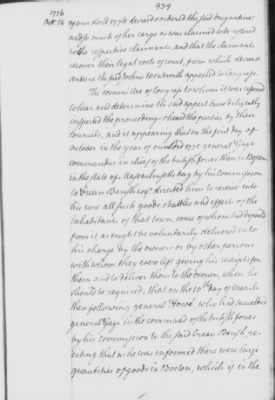 939
1776
Oct. 14
of our Lord 1776 decreed & ordered the said brigantine
and so much of her cargo as was claimed to be restored
to the respective claimants, and that the claimants
recover their legal costs of court from which decree or
sentence the said John Wentworth appealed to congress.
The committee of congress to whom it was referred
to hear and determine the said appeal have diligently
inspected the proceedings & heard the parties by their
counsels, and it appearing that on the first day of
October in the year of our Lord 1775 general Gage
commander in chief of the british forces then in Boston
in the state of Massachusetts bay by his commission
to Crean Brush esqr. directed him to receive into
his care all such goods, chattles and effects of the
inhabitants of that town, some of whom had departed
from it as might be voluntarily delivered into
his charge by the owners or by other persons
with whom they were left giving his receipts for
them and to deliver them to the owner, when he
should be required, that on the 10th day of March
then following general Howe who had succeeded
general Gage in the command of the british forces
by his commission to the said Crean Brush, re-
citing that as he was informed there were large
quantities of goods in Boston, which, if in the